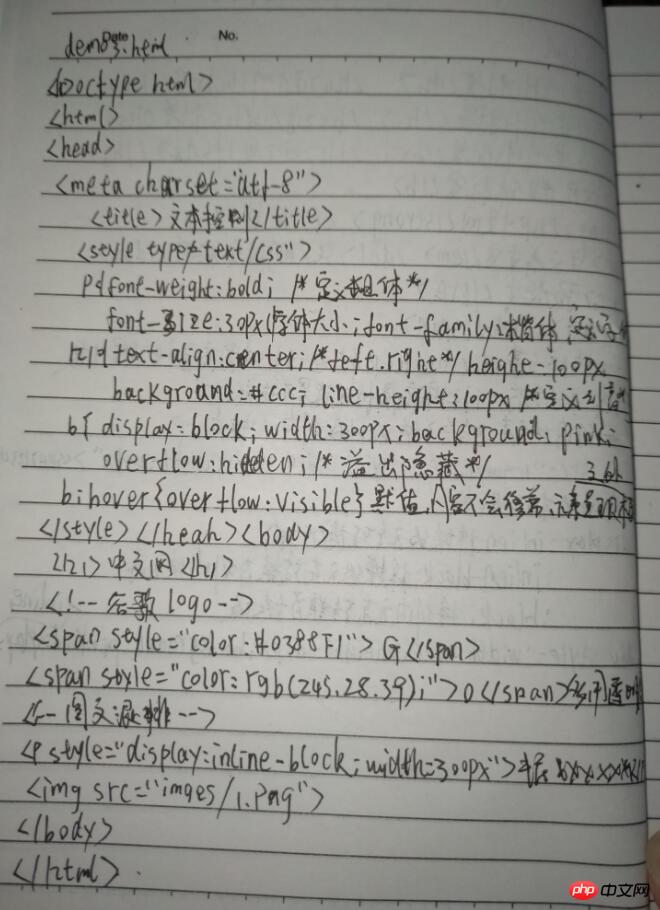 demo3.html
Date
No.
<Doctype html>
<html>
<head>
<meta charset="utf-8">
<title>文本控制</title>
<style type="text/css">
P{font-weight:bold; /*定义粗体*/
font-size:30px(字体大小;font-family:
h1{text-align:center;/*left.right*/ heighe=100px
background=#ccc; line-height:100px /*定义行高
b{ display=block; width=300px; background: pink;
overflow:hidden; /*溢出隐藏*/
b:hover{overflow:visible} 默认值,内容不会修剪,
</style></heah><body>
<h1>中文网</h1>
<!-- 谷歌 logo -->
<span style="color:#0388F1">G</span>
<span style="color:rgb(245.28.39);">O</span>
<!-- 图文混排 -->
<P style="display:inline-block; width=300px">
<img src="imges/1.Png">
</body>
</html>
php 中文网